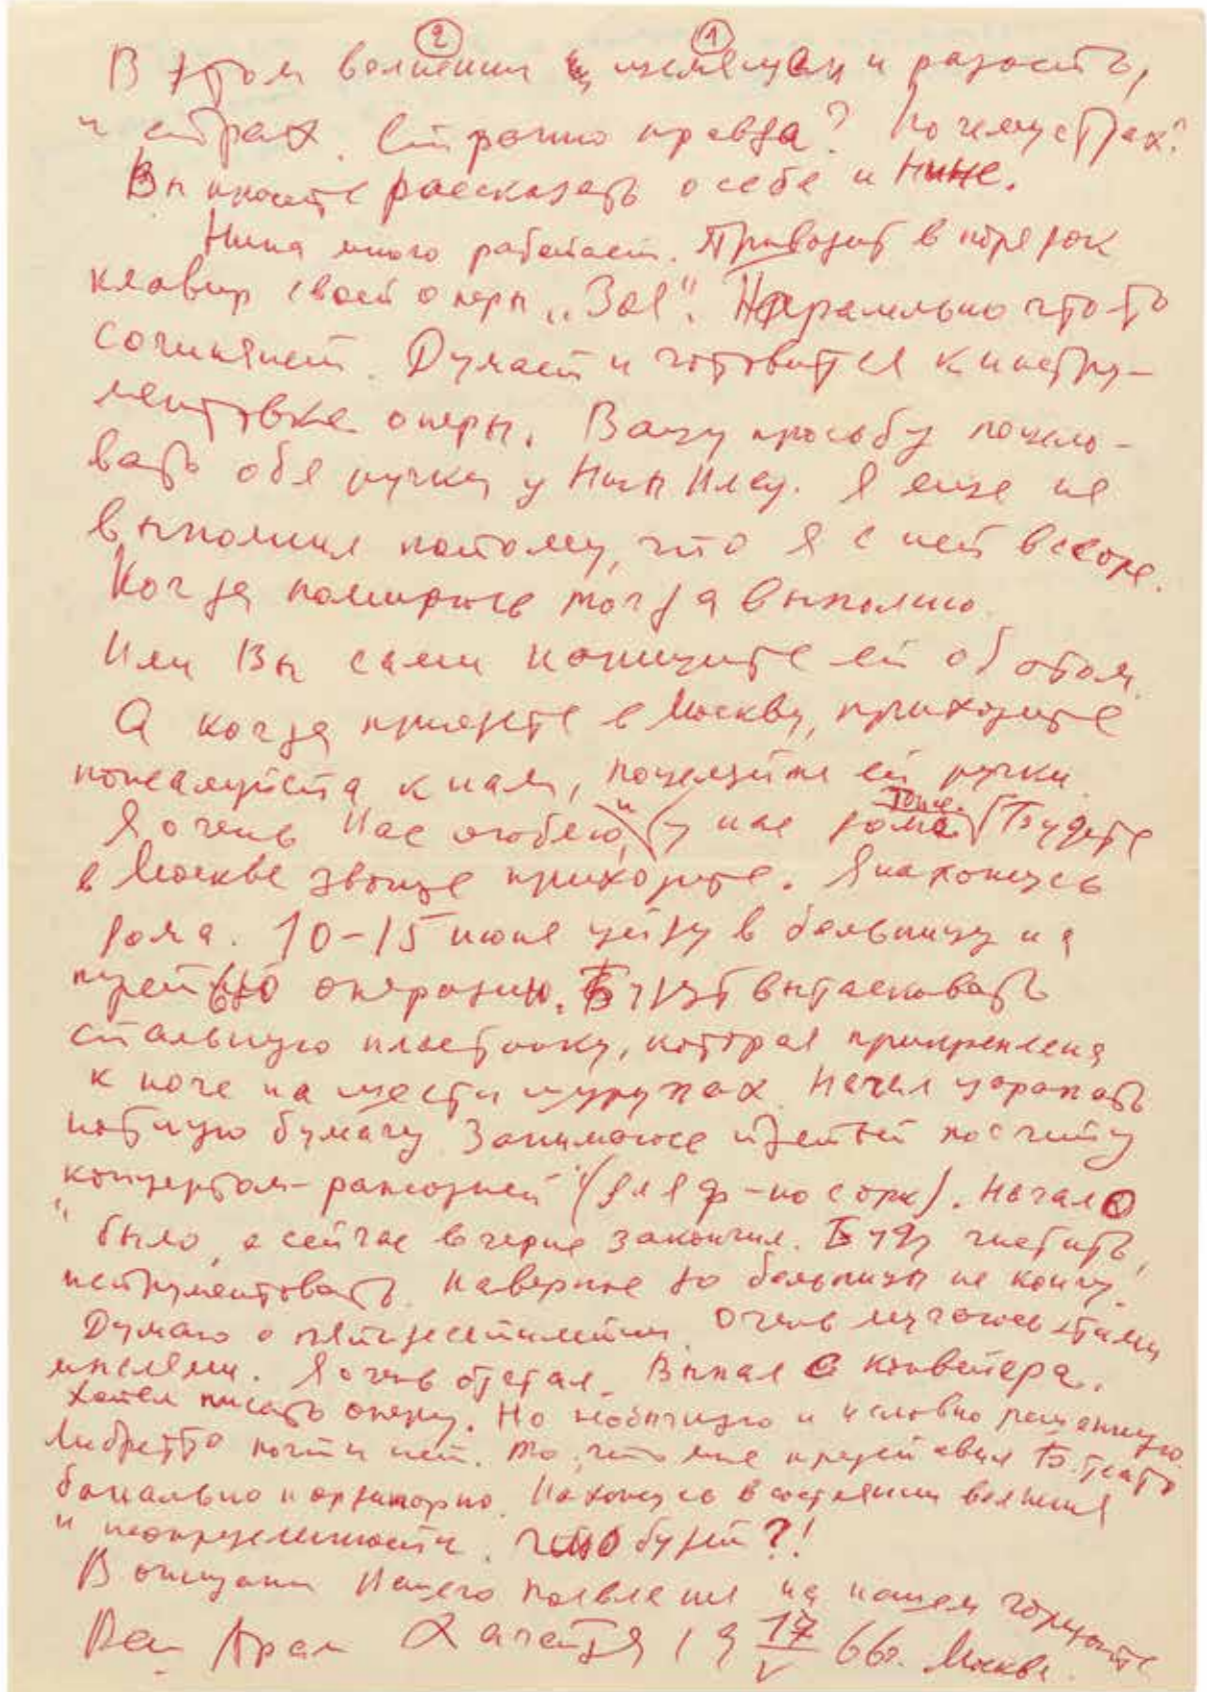 2 1
В этом волнении и щемящая и радость,
и страх. Странно правда? Почему страх?
Вы просите рассказать о себе и Нине.
Нина много работает. Приводит в порядок
клавир своей оперы „Зоя“. Параллельно что-то
сочиняет. Думает и готовится к инстру-
ментовке оперы. Вашу просьбу поцело-
вать обе ручки у Нины Илы. Я еще не
выполнил потому, что я с ней в ссоре.
Когда помирюсь тогда выполню.
Или Вы сами напишите ей об этом.
А когда приедете в Москву, приходите
пожалуйста к нам, поцелуйте ей ручки.
Я очень Вас люблю, и у нас дома тоже. Будете
в Москве звоните приходите. Я нахожусь
дома. 10-15 июня уйду в больницу на
третью операцию. Будут вытаскивать
стальную пластинку, которая прикреплена
к ноге на шести шурупах. Начал царапать
нотную бумагу. Занимаюсь третьей по счету
"концертом-рапсодией" (для ф-но с орк). Начало
было, а сейчас вчерне закончил. Буду чистить,
инструментовать. Наверное до больницы не кончу.
Думаю о пятидесятилетии. Очень мучаюсь этими
мыслями. Я очень отстал. Выпал с конвейера.
Хотел писать оперу. Но необычную и условно решенную.
Либретто почти нет. То, что мне представил Б. театр
банально и ораторно. Нахожусь в состоянии волнения
и неопределенности. Что будет?!
В ожидании Вашего появления на нашем горизонте
Ваш Арам Хачатурян 19 17/V 66г. Москва.